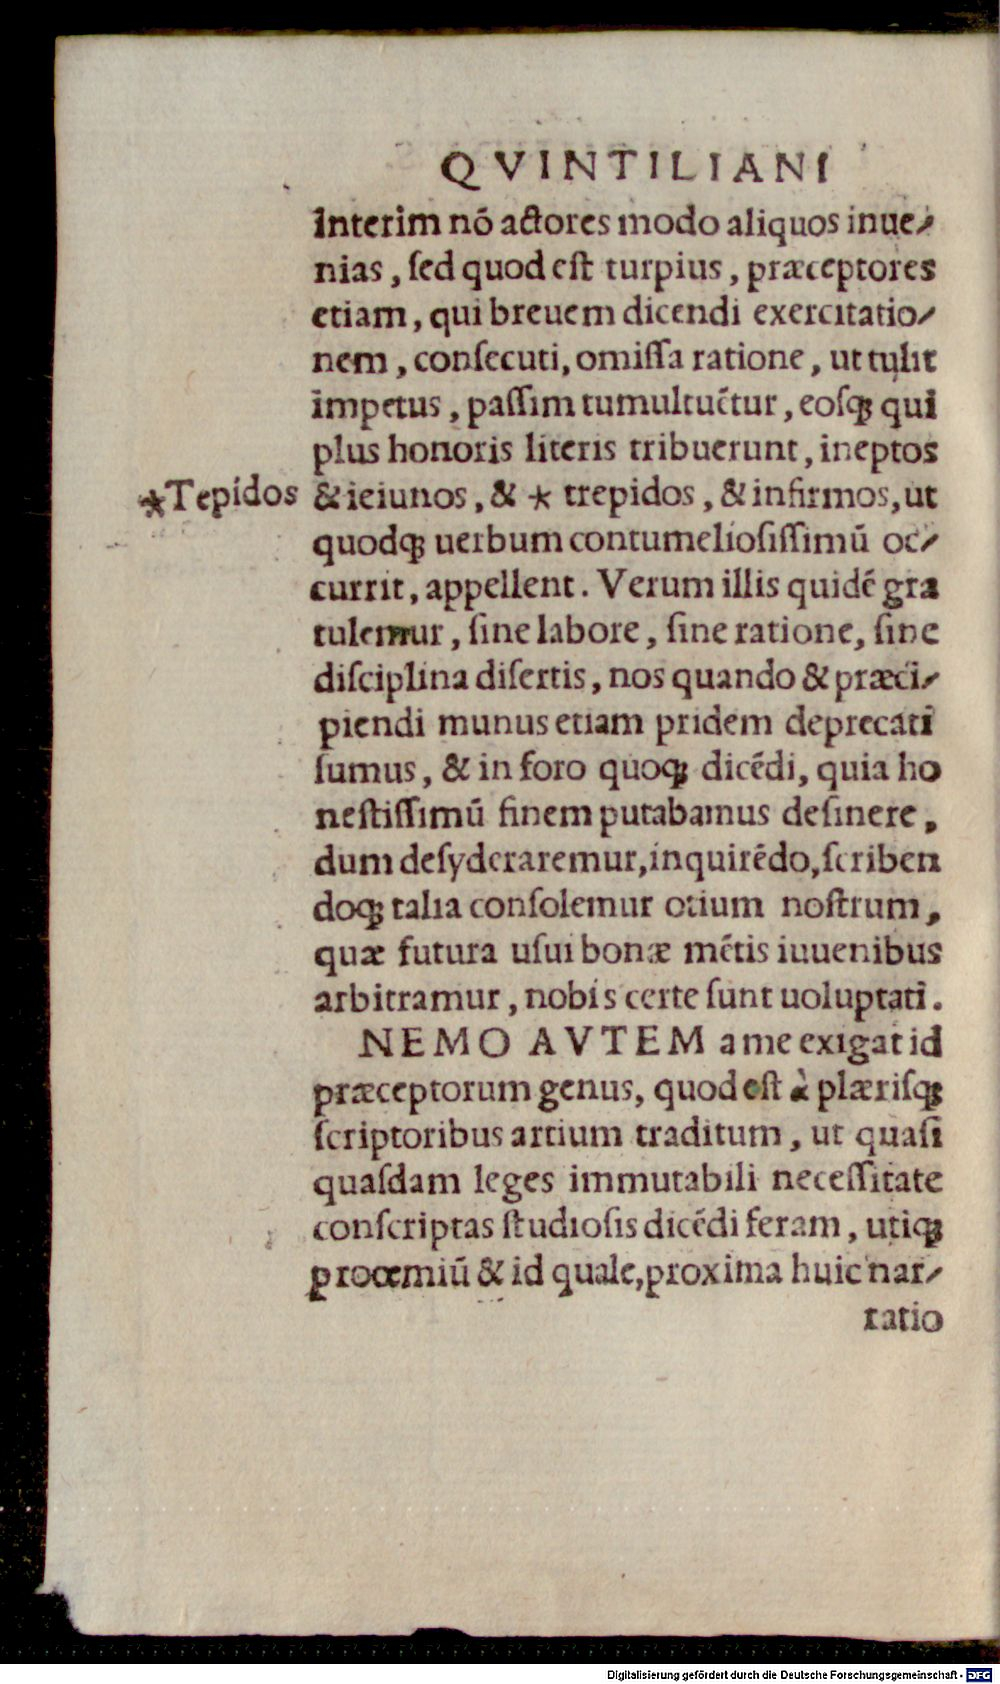 QVINTILIANI
Interim nō actores modo aliquos inue-
nias, ſed quod eſt turpius, præceptores
etiam, qui breuem dicendi exercitatio-
nem, conſecuti, omiſſa ratione, ut tulit
impetus, paſſim tumultuētur, eoſq; qui
plus honoris literis tribuerunt, ineptos
*Tepidos & ieiunos, & * trepidos, & infirmos, ut
quodq; uerbum contumelioſiſſimū oc-
currit, appellent. Verum illis quidē gra
tulemur, ſine labore, ſine ratione, ſine
diſciplina diſertis, nos quando & præci-
piendi munus etiam pridem deprecati
ſumus, & in foro quoq; dicēdi, quia ho
neſtiſſimū finem putabamus deſinere,
dum deſyderaremur, inquirēdo, ſcriben
doq; talia conſolemur otium noſtrum,
quæ futura uſui bonæ mētis iuuenibus
arbitramur, nobis certe ſunt uoluptati.
NEMO AVTEM a me exigat id
præceptorum genus, quod eſt à plæriſq;
ſcriptoribus artium traditum, ut quaſi
quaſdam leges immutabili neceſſitate
conſcriptas ſtudioſis dicēdi feram, utiq;
procemiū & id quale, proxima huic nar-
ratio
Digitalisierung gefördert durch die Deutsche Forschungsgemeinschaft - DFG